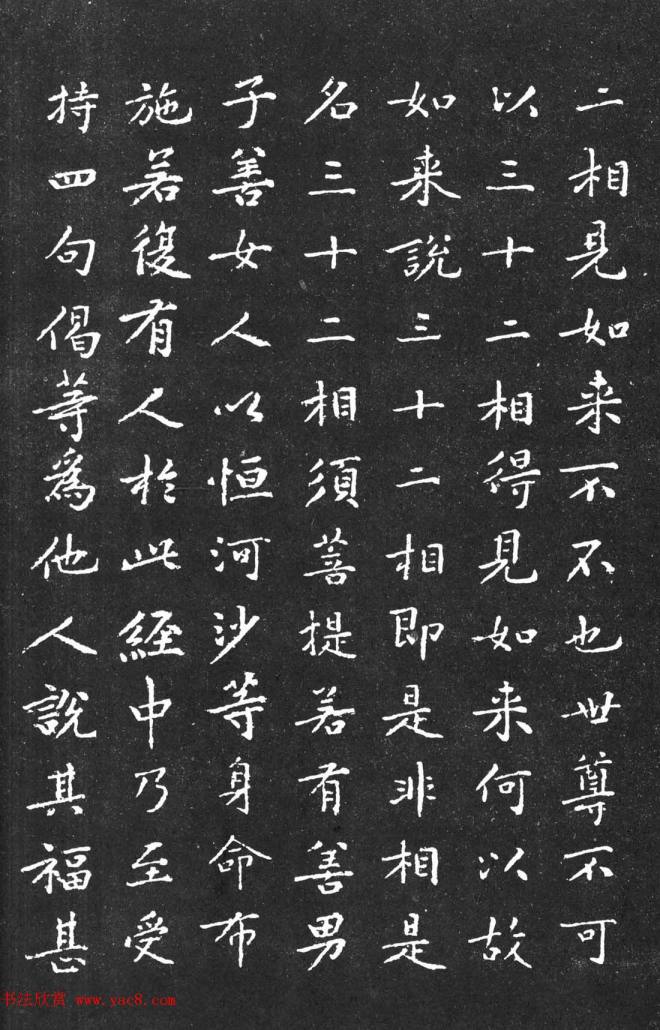 二相見如来不不也世尊不可
以三十二相得見如来何以故
如来說三十二相即是非相是
名三十二相須菩提若有善男
子善女人以恒河沙等身命布
施若復有人於此經中乃至受
持四句偈等爲他人說其福甚
书法欣赏 www.yac8.com